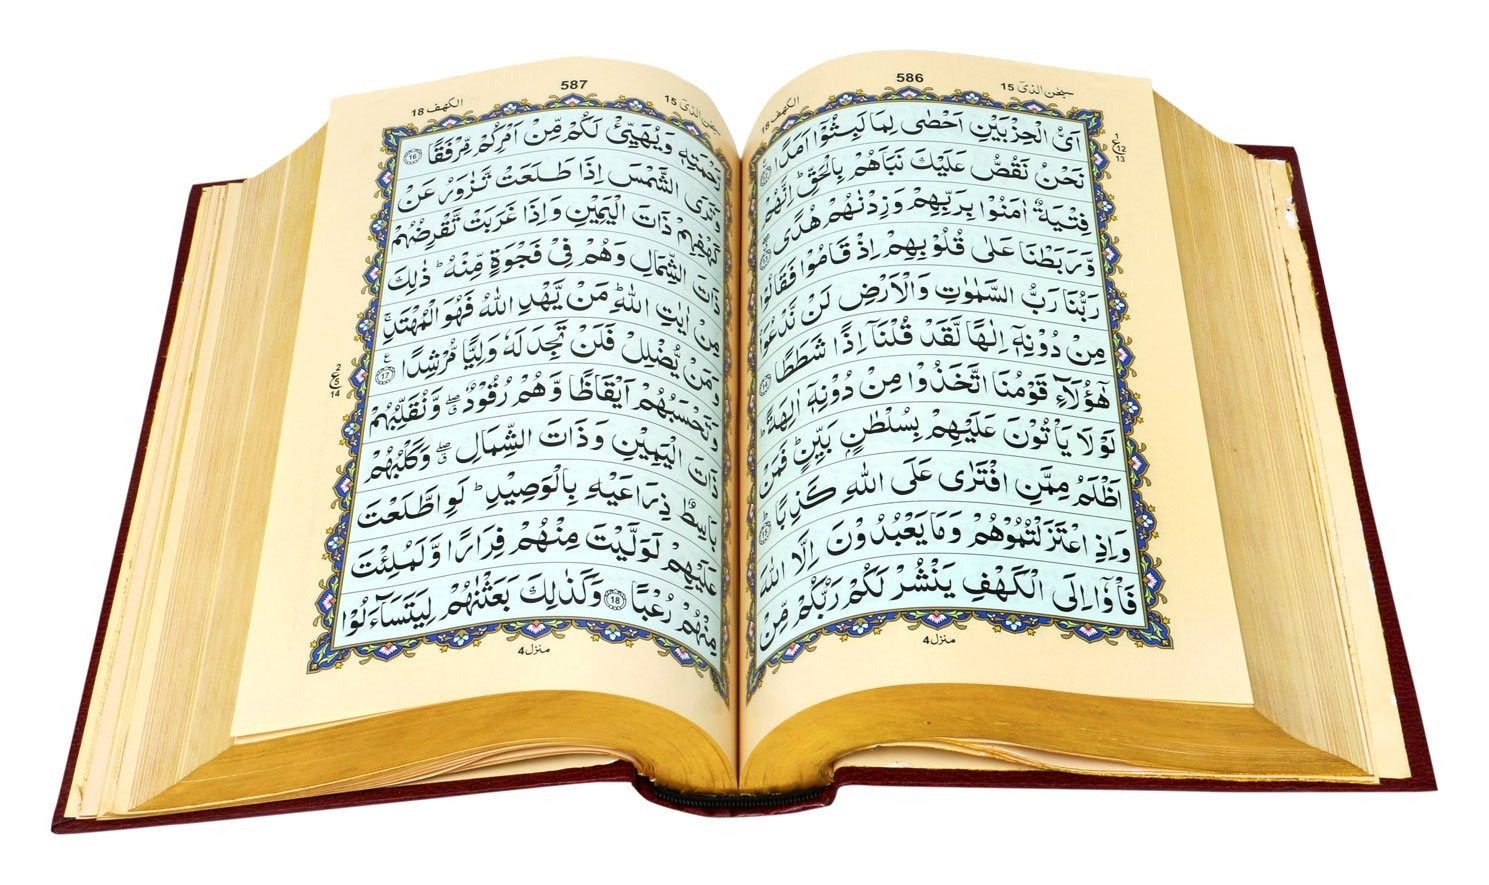 586
سبحٰن الذیٓ 15
الکہف 18
اَیُّ الْحِزْبَیْنِ اَحْصٰی لِمَا لَبِثُوْۤا اَمَدًا
نَحْنُ نَقُصُّ عَلَیْكَ نَبَاَهُمْ بِالْحَقِّ ؕ اِنَّهُمْ
فِتْیَةٌ اٰمَنُوْا بِرَبِّهِمْ وَزِدْنٰهُمْ هُدًی
وَّرَبَطْنَا عَلٰی قُلُوْبِهِمْ اِذْ قَامُوْا فَقَالُوْا
رَبُّنَا رَبُّ السَّمٰوٰتِ وَالْاَرْضِ لَنْ نَّدْعُوَا۟
مِنْ دُوْنِهٖۤ اِلٰهًا لَّقَدْ قُلْنَاۤ اِذًا شَطَطًا ۝14
هٰۤؤُلَآءِ قَوْمُنَا اتَّخَذُوْا مِنْ دُوْنِهٖۤ اٰلِهَةً ؕ
لَوْ لَا یَاْتُوْنَ عَلَیْهِمْ بِسُلْطٰنٍۭ بَیِّنٍ ؕ فَمَنْ
اَظْلَمُ مِمَّنِ افْتَرٰی عَلَی اللّٰهِ كَذِبًا ؕ ۝15
وَاِذِ اعْتَزَلْتُمُوْهُمْ وَمَا یَعْبُدُوْنَ اِلَّا اللّٰهَ
فَاْوٗۤا اِلَی الْكَهْفِ یَنْشُرْ لَكُمْ رَبُّكُمْ مِّنْ
1
ع 12
13
منزل 4
587
سبحٰن الذیٓ 15
الکہف 18
رَّحْمَتِهٖ وَیُهَیِّئْ لَكُمْ مِّنْ اَمْرِكُمْ مِّرْفَقًا ۝16
وَتَرَی الشَّمْسَ اِذَا طَلَعَتْ تَّزٰوَرُ عَنْ
كَهْفِهِمْ ذَاتَ الْیَمِیْنِ وَاِذَا غَرَبَتْ تَّقْرِضُهُمْ
ذَاتَ الشِّمَالِ وَهُمْ فِیْ فَجْوَةٍ مِّنْهُ ؕ ذٰلِكَ
مِنْ اٰیٰتِ اللّٰهِ ؕ مَنْ یَّهْدِ اللّٰهُ فَهُوَ الْمُهْتَدِ ۚ
وَمَنْ یُّضْلِلْ فَلَنْ تَجِدَ لَهٗ وَلِیًّا مُّرْشِدًا ۝17
وَتَحْسَبُهُمْ اَیْقَاظًا وَّهُمْ رُقُوْدٌ ۖۗ وَّنُقَلِّبُهُمْ
ذَاتَ الْیَمِیْنِ وَذَاتَ الشِّمَالِ ۖۗ وَكَلْبُهُمْ
بَاسِطٌ ذِرَاعَیْهِ بِالْوَصِیْدِ ؕ لَوِ اطَّلَعْتَ
عَلَیْهِمْ لَوَلَّیْتَ مِنْهُمْ فِرَارًا وَّلَمُلِئْتَ
مِنْهُمْ رُعْبًا ۝18 وَكَذٰلِكَ بَعَثْنٰهُمْ لِیَتَسَآءَلُوْا
2
ع 5
14
منزل 4